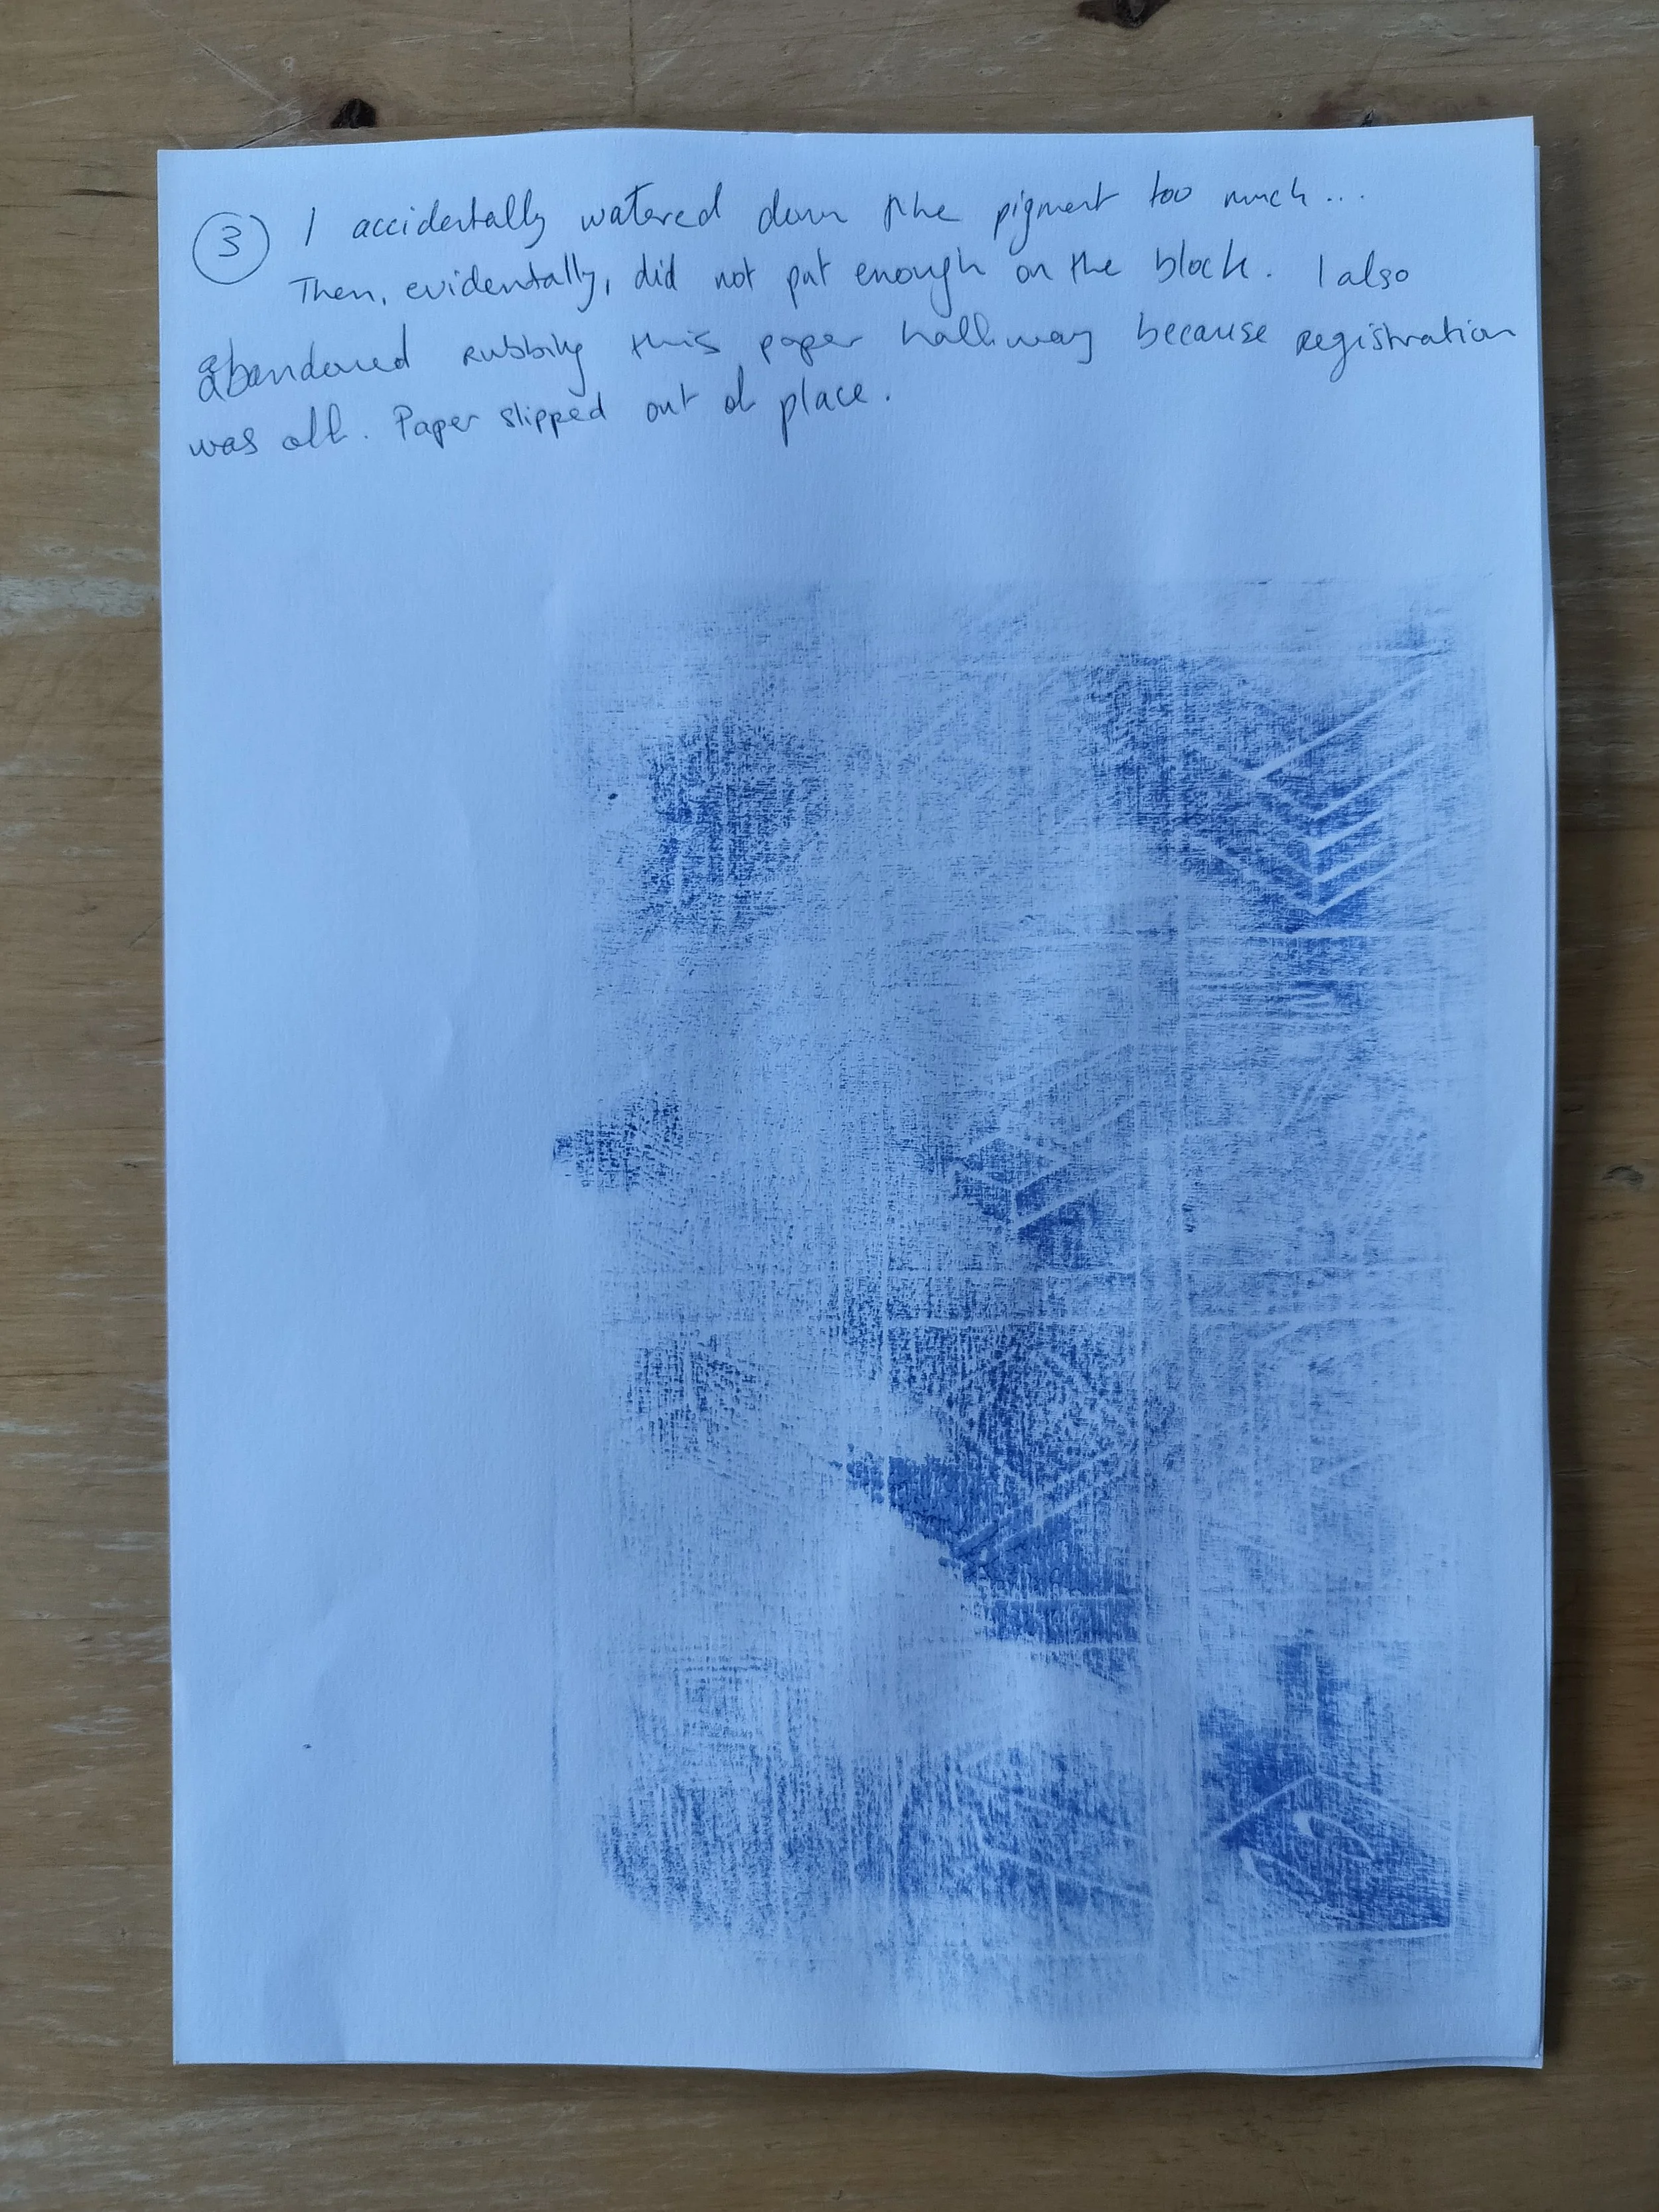 3 I accidentally watered down the pigment too much...
Then, evidentally, did not put enough on the block. I also
abandoned rubbing this paper halfway because registration
was off. Paper slipped out of place.